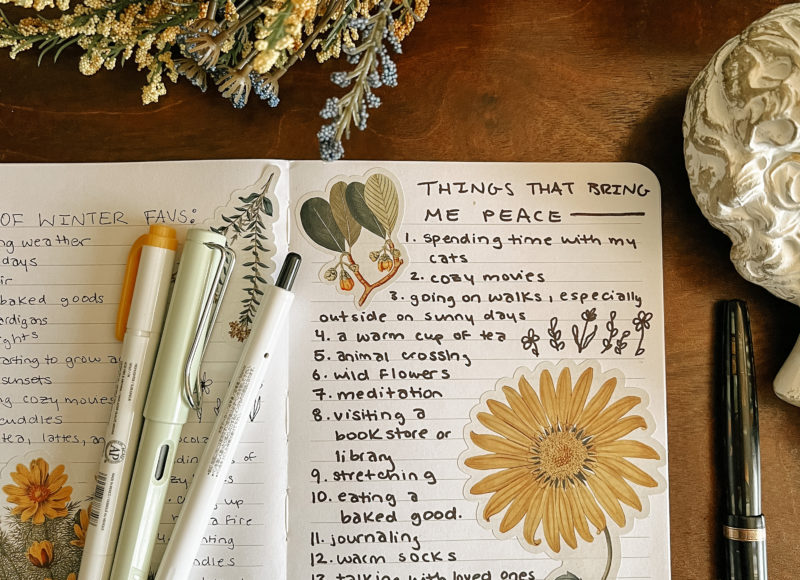 OF WINTER FAVS:
weather
days
baked goods
sunsets
cozy movies
cuddles
tea, lattes,
of
up
a fire
THINGS THAT BRING
ME PEACE
1. spending time with my
cats
2. cozy movies
3. going on walks, especially
outside on sunny days
4. a warm cup of tea
5. animal crossing
6. wild flowers
7. meditation
8. visiting a
bookstore or
library
9. stretching
10. eating a
baked good.
11. journaling
12. warm socks
13. talking with loved ones